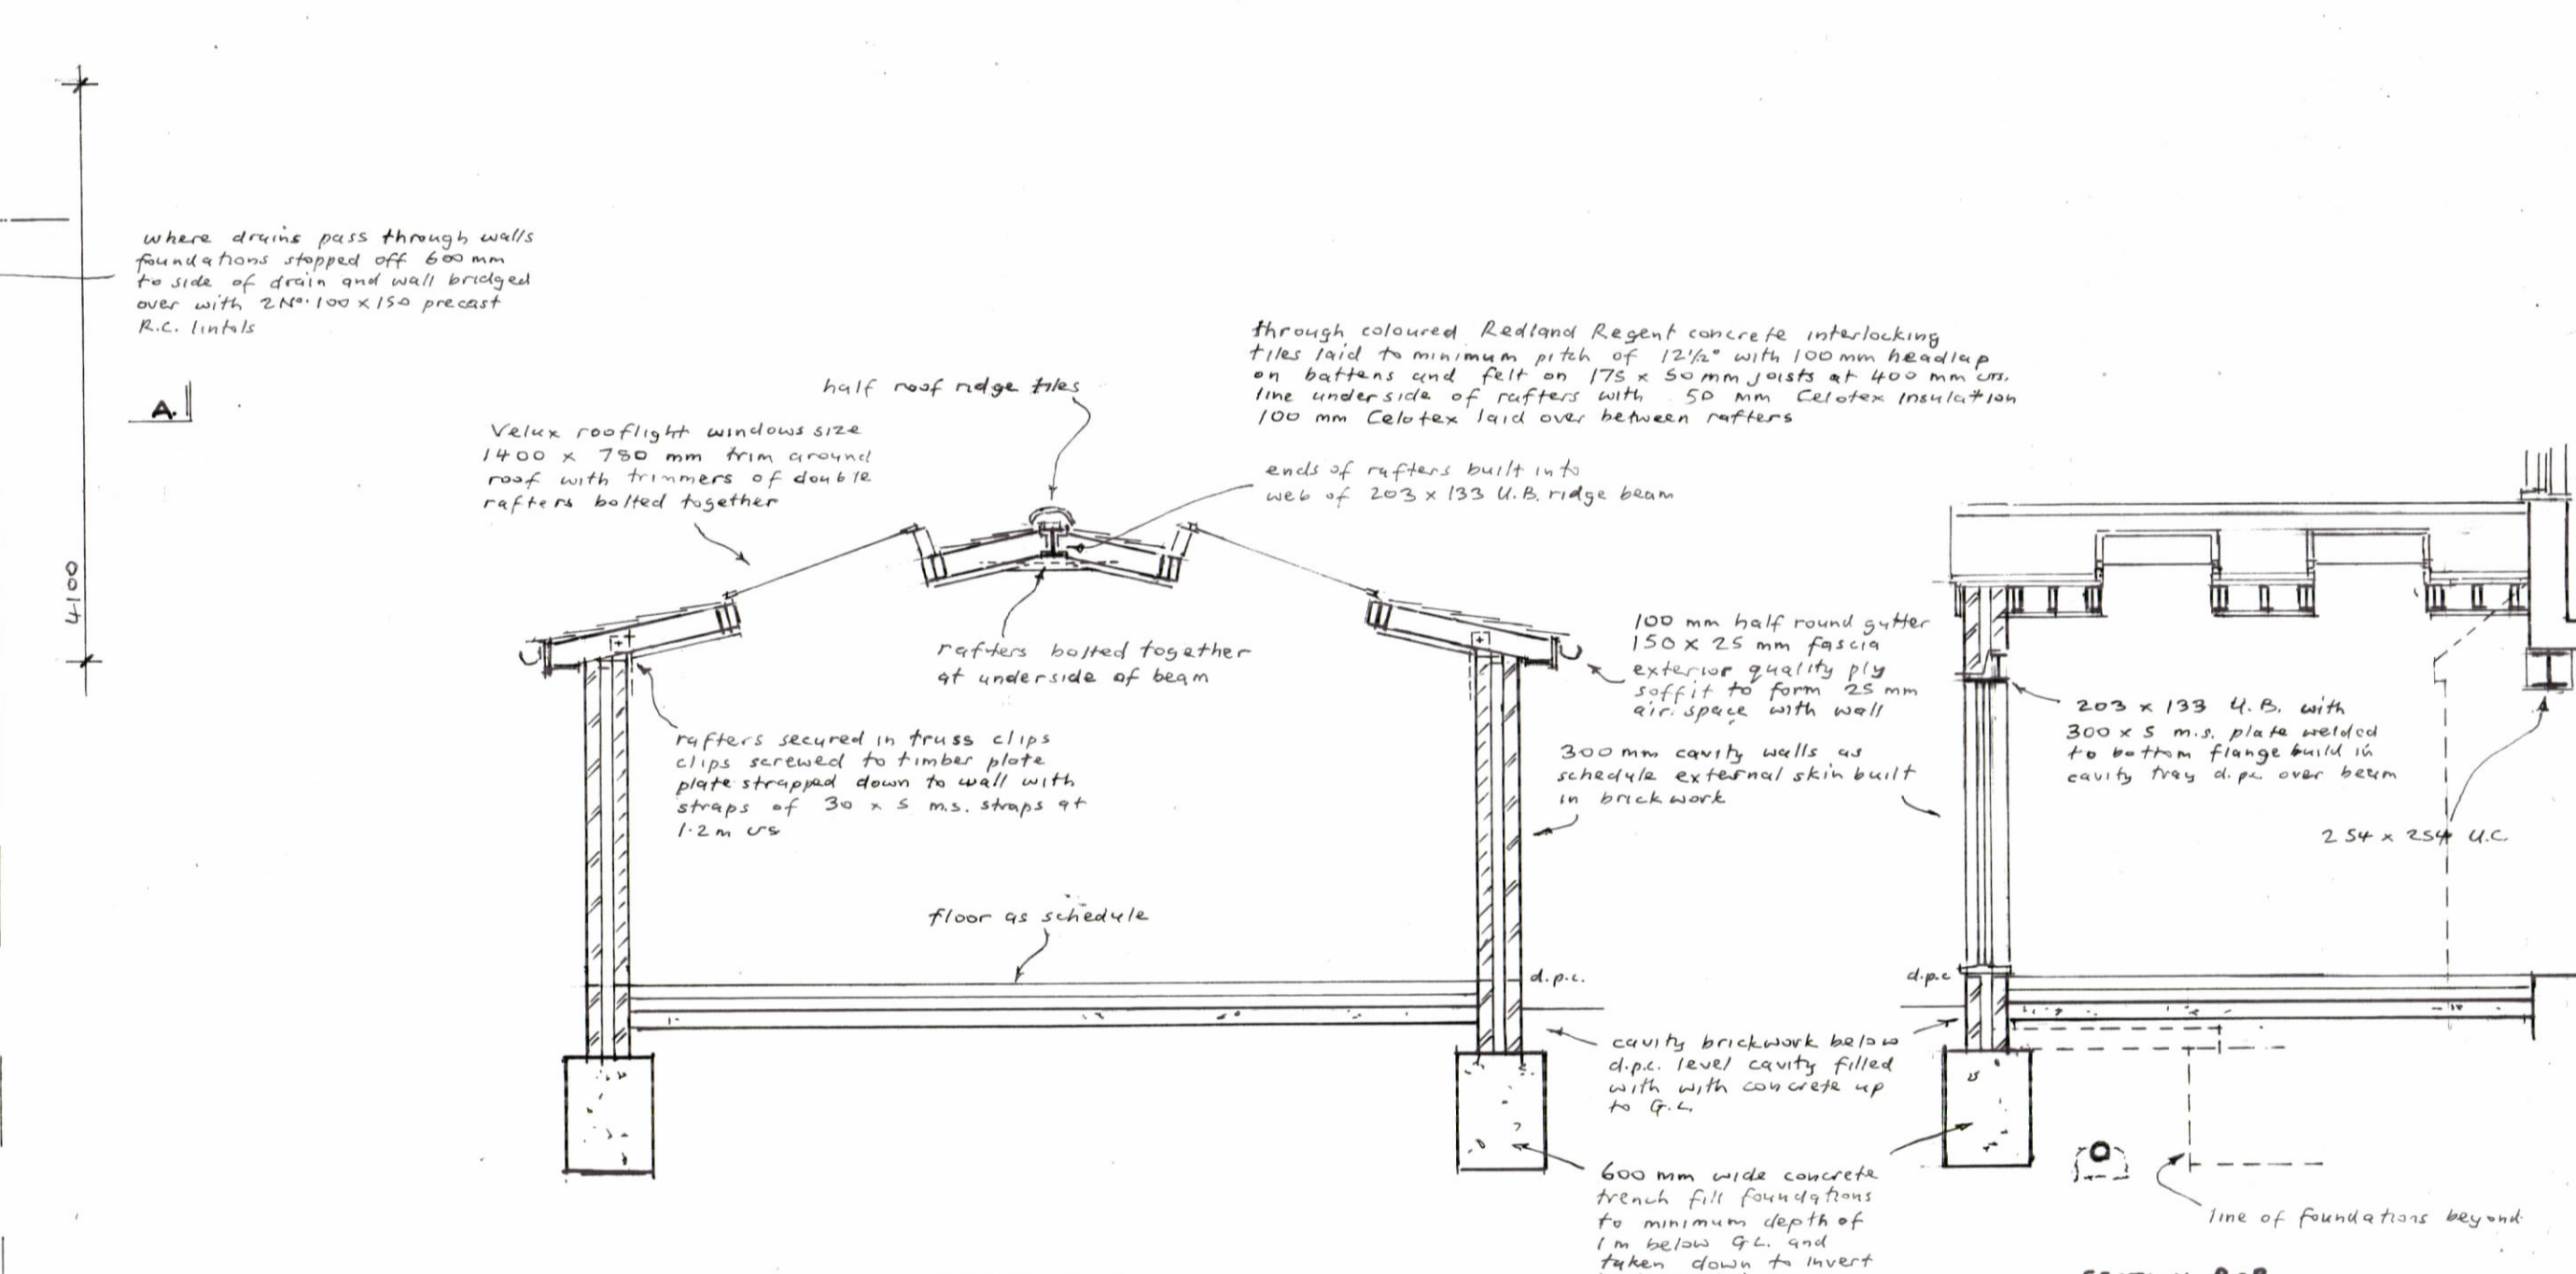 where drains pass through walls
foundations stopped off 600 mm
to side of drain and wall bridged
over with 2 No. 100 x 150 precast
R.C. lintols
A.
4100
half roof ridge tiles
Velux rooflight windows size
1400 x 780 mm trim around
roof with trimmers of double
rafters bolted together
through coloured Redland Regent concrete interlocking
tiles laid to minimum pitch of 12½° with 100 mm headlap
on battens and felt on 175 x 50 mm joists at 400 mm crs.
line underside of rafters with 50 mm Celotex insulation
100 mm Celotex laid over between rafters
ends of rafters built into
web of 203 x 133 U.B. ridge beam
rafters bolted together
at underside of beam
rafters secured in truss clips
clips screwed to timber plate
plate strapped down to wall with
straps of 30 x 5 m.s. straps at
1.2 m crs
100 mm half round gutter
150 x 25 mm fascia
exterior quality ply
soffit to form 25 mm
air space with wall
300 mm cavity walls as
schedule external skin built
in brickwork
203 x 133 U.B. with
300 x 5 m.s. plate welded
to bottom flange build in
cavity tray d.p.c. over beam
254 x 254 U.C.
floor as schedule
d.p.c.
d.p.c
cavity brickwork below
d.p.c. level cavity filled
with with concrete up
to G.L.
600 mm wide concrete
trench fill foundations
to minimum depth of
1 m below G.L. and
taken down to invert
line of foundations beyond.